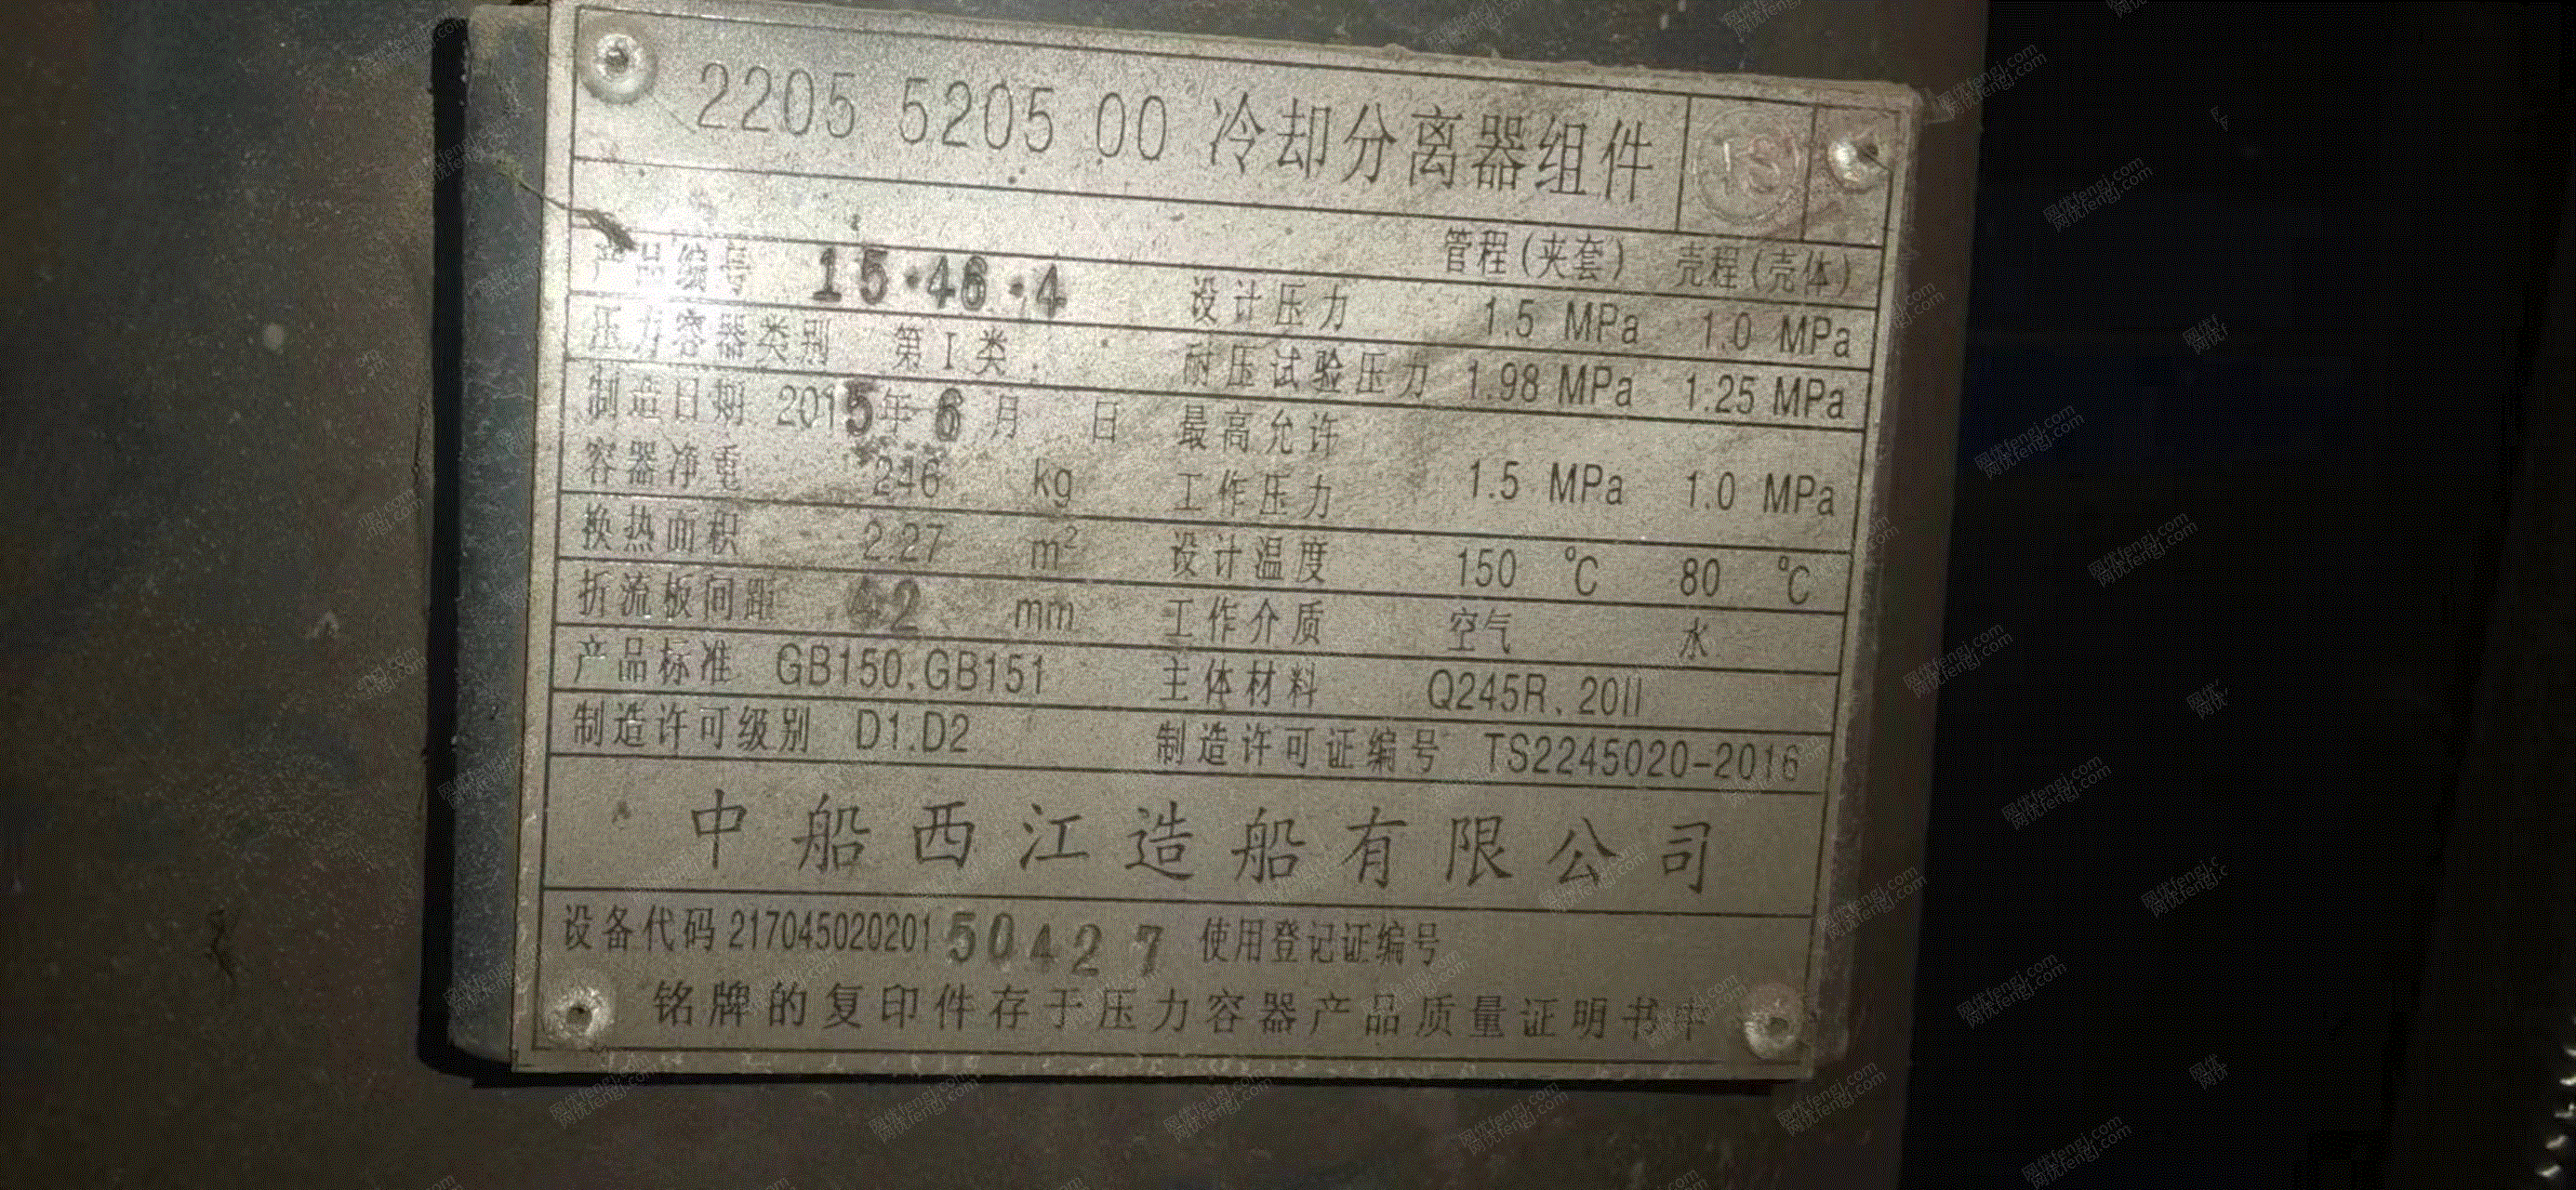 2205 5205 00 冷却分离器组件
管程(夹套) 壳程(壳体)
产品编号 15·46·4 设计压力 1.5 MPa 1.0 MPa
压力容器类别 第Ⅰ类 耐压试验压力 1.98 MPa 1.25 MPa
制造日期 2015年6月 日 最高允许
容器净重 246 kg 工作压力 1.5 MPa 1.0 MPa
换热面积 2.27 m² 设计温度 150 ℃ 80 ℃
折流板间距 42 mm 工作介质 空气 水
产品标准 GB150.GB151 主体材料 Q245R.20II
制造许可级别 D1.D2 制造许可证编号 TS2245020-2016
中船西江造船有限公司
设备代码 21704502020150427 使用登记证编号
铭牌的复印件存于压力容器产品质量证明书中
网优fengj.com